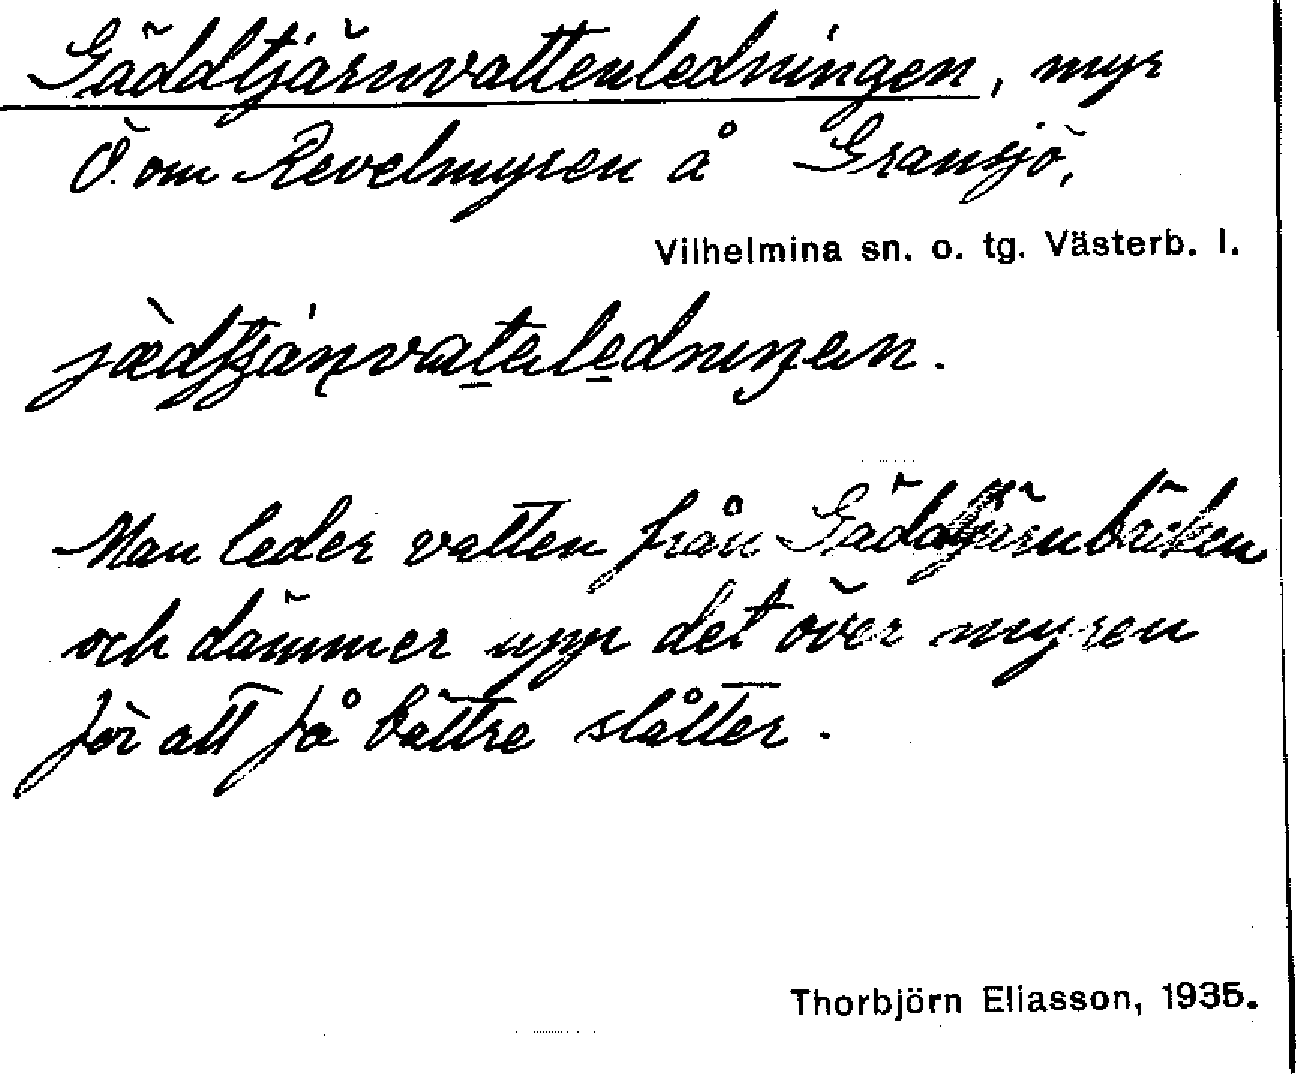 Gäddtjärnvattenledningen, myr
Ö. om Revelmyren å Gransjö,
Vilhelmina sn. o. tg. Västerb. l.
Man leder vatten från Gäddtjärnbäcken
och dämmer upp det över myren
för att få bättre slåtter.
Thorbjörn Eliasson, 1935.